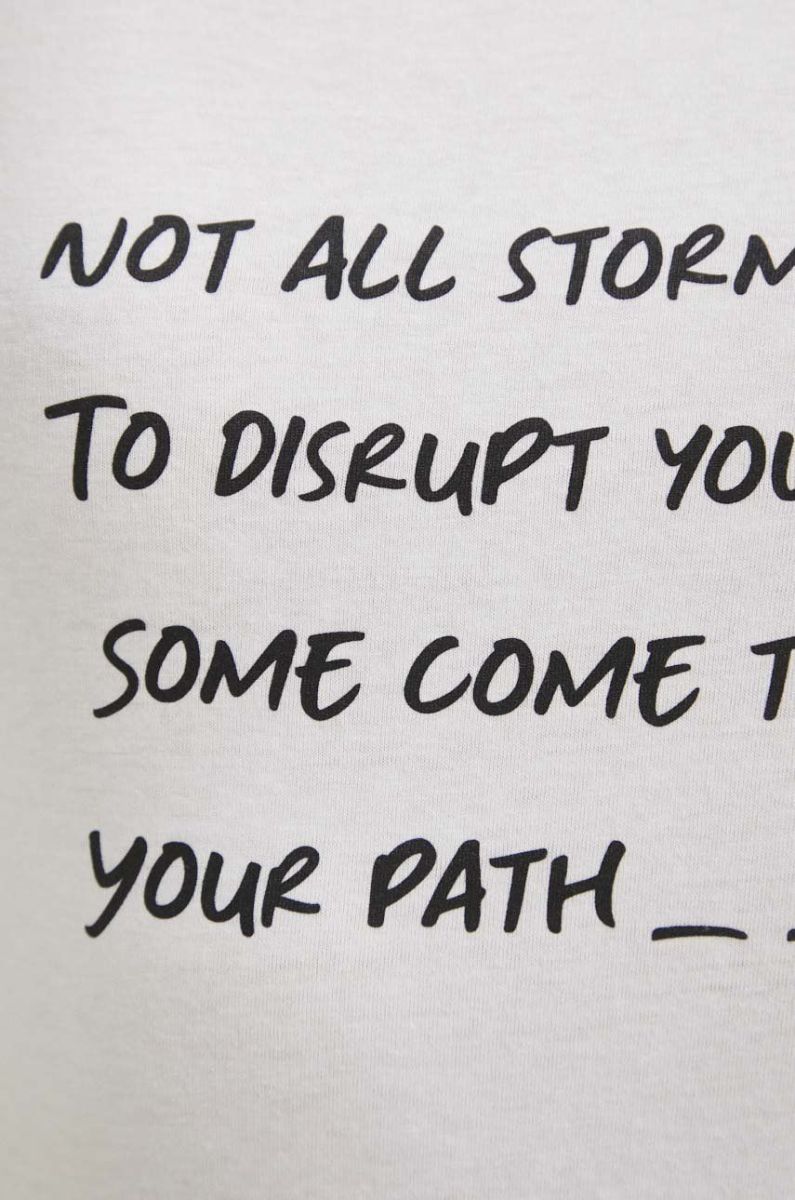 NOT ALL STORM
TO DISRUPT YOU
SOME COME T
YOUR PATH _ _